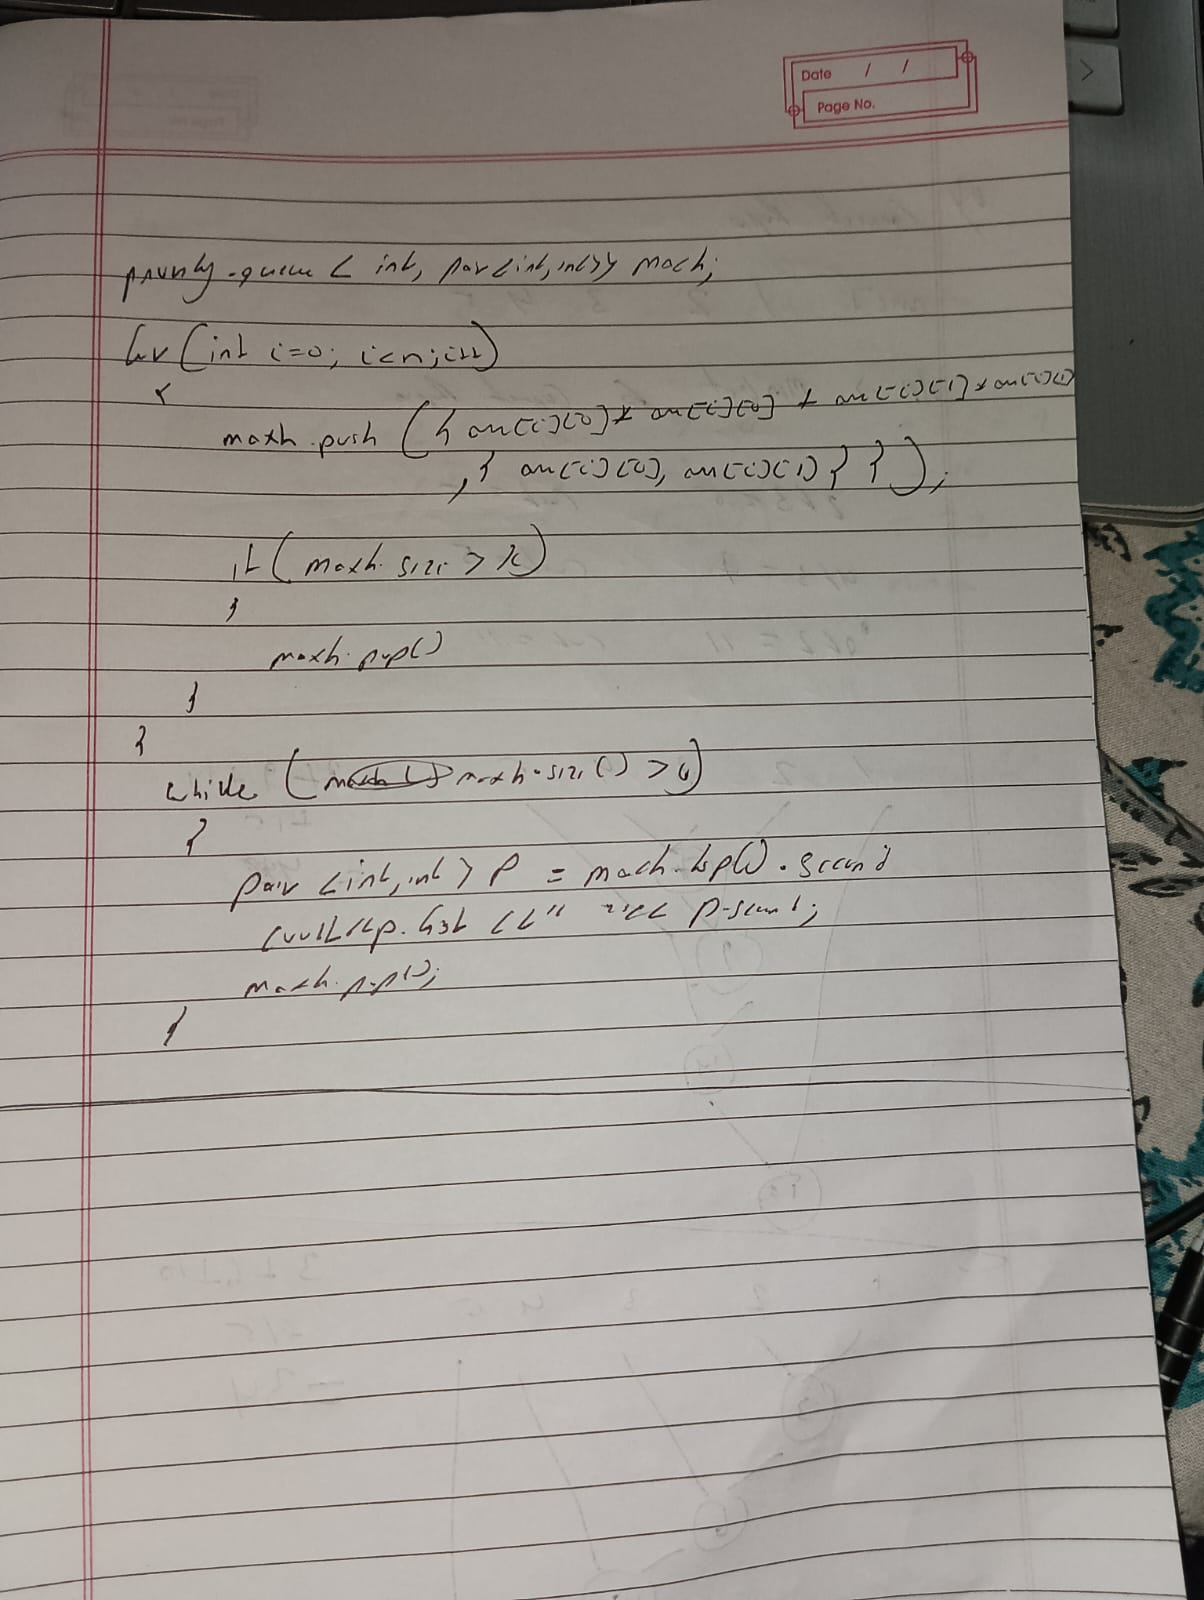 Date / /
Page No.
priority-queue < int, pair<int, int>> maxh;
for (int i=0; i<n; i++)
{
maxh.push ({ arr[i][0]* arr[i][0] + arr[i][1]*arr[i][1]
, { arr[i][0], arr[i][1] } });
if (maxh.size > k)
{
maxh.pop()
}
}
while ( maxh.size() > 0)
{
pair <int, int> p = maxh.top().second
cout<<p.first << " " << p.second;
maxh.pop();
}